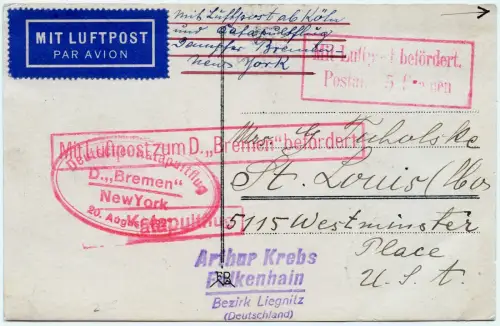 MIT LUFTPOST
PAR AVION
Mit Luftpost ab Köln
und Catapultflug
Dampfer Bremen
New York
Mit Luftpost befördert.
Postamt 5
Mit Luftpost zum D. „Bremen" befördert
Deutscher Katapultflug
D. „Bremen"
New York
20. August
Katapultflug
Mrs. G. Tucholske
St. Louis (Mo
5115 Westminster
Place
U.S.A.
Arthur Krebs
Falkenhain
Bezirk Liegnitz
(Deutschland)